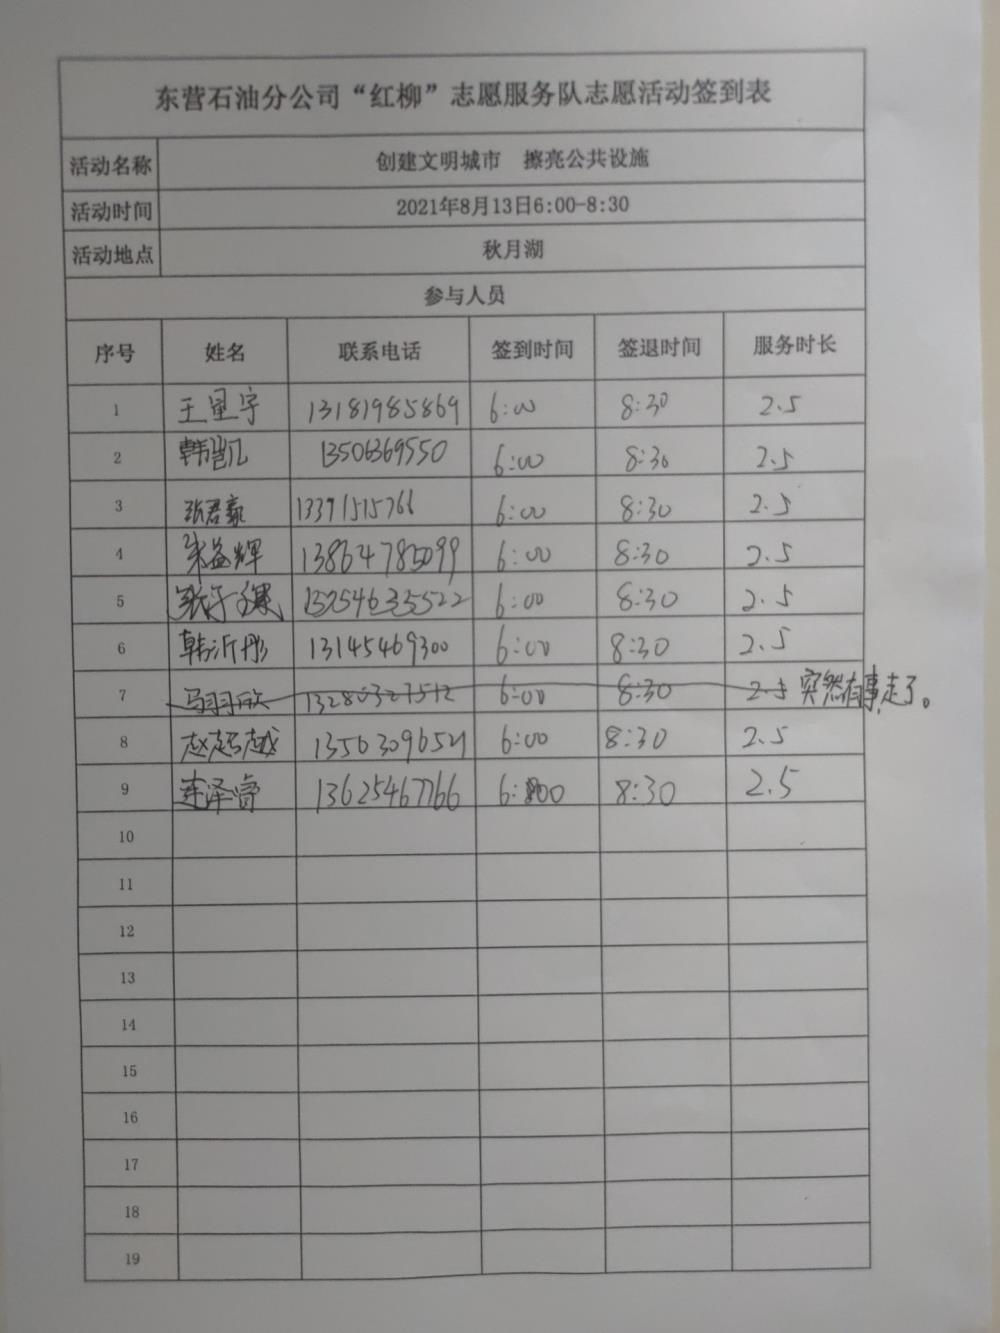 东营石油分公司“红柳”志愿服务队志愿活动签到表
活动名称 创建文明城市 擦亮公共设施
活动时间 2021年8月13日6:00-8:30
活动地点 秋月湖
参与人员
序号 姓名 联系电话 签到时间 签退时间 服务时长
1 王星宇 13181985869 6:00 8:30 2.5
2 韩凯 13506369550 6:00 8:30 2.5
3 张君豪 13391515766 6:00 8:30 2.5
4 朱益辉 13864785099 6:00 8:30 2.5
5 15254635522 6:00 8:30 2.5
6 韩沂彤 13145469300 6:00 8:30 2.5
7 马羽欣 6:00 8:30 2.5 突然有事,走了。
8 赵超越 13563096521 6:00 8:30 2.5
9 连泽睿 13625467766 6:00 8:30 2.5
10
11
12
13
14
15
16
17
18
19